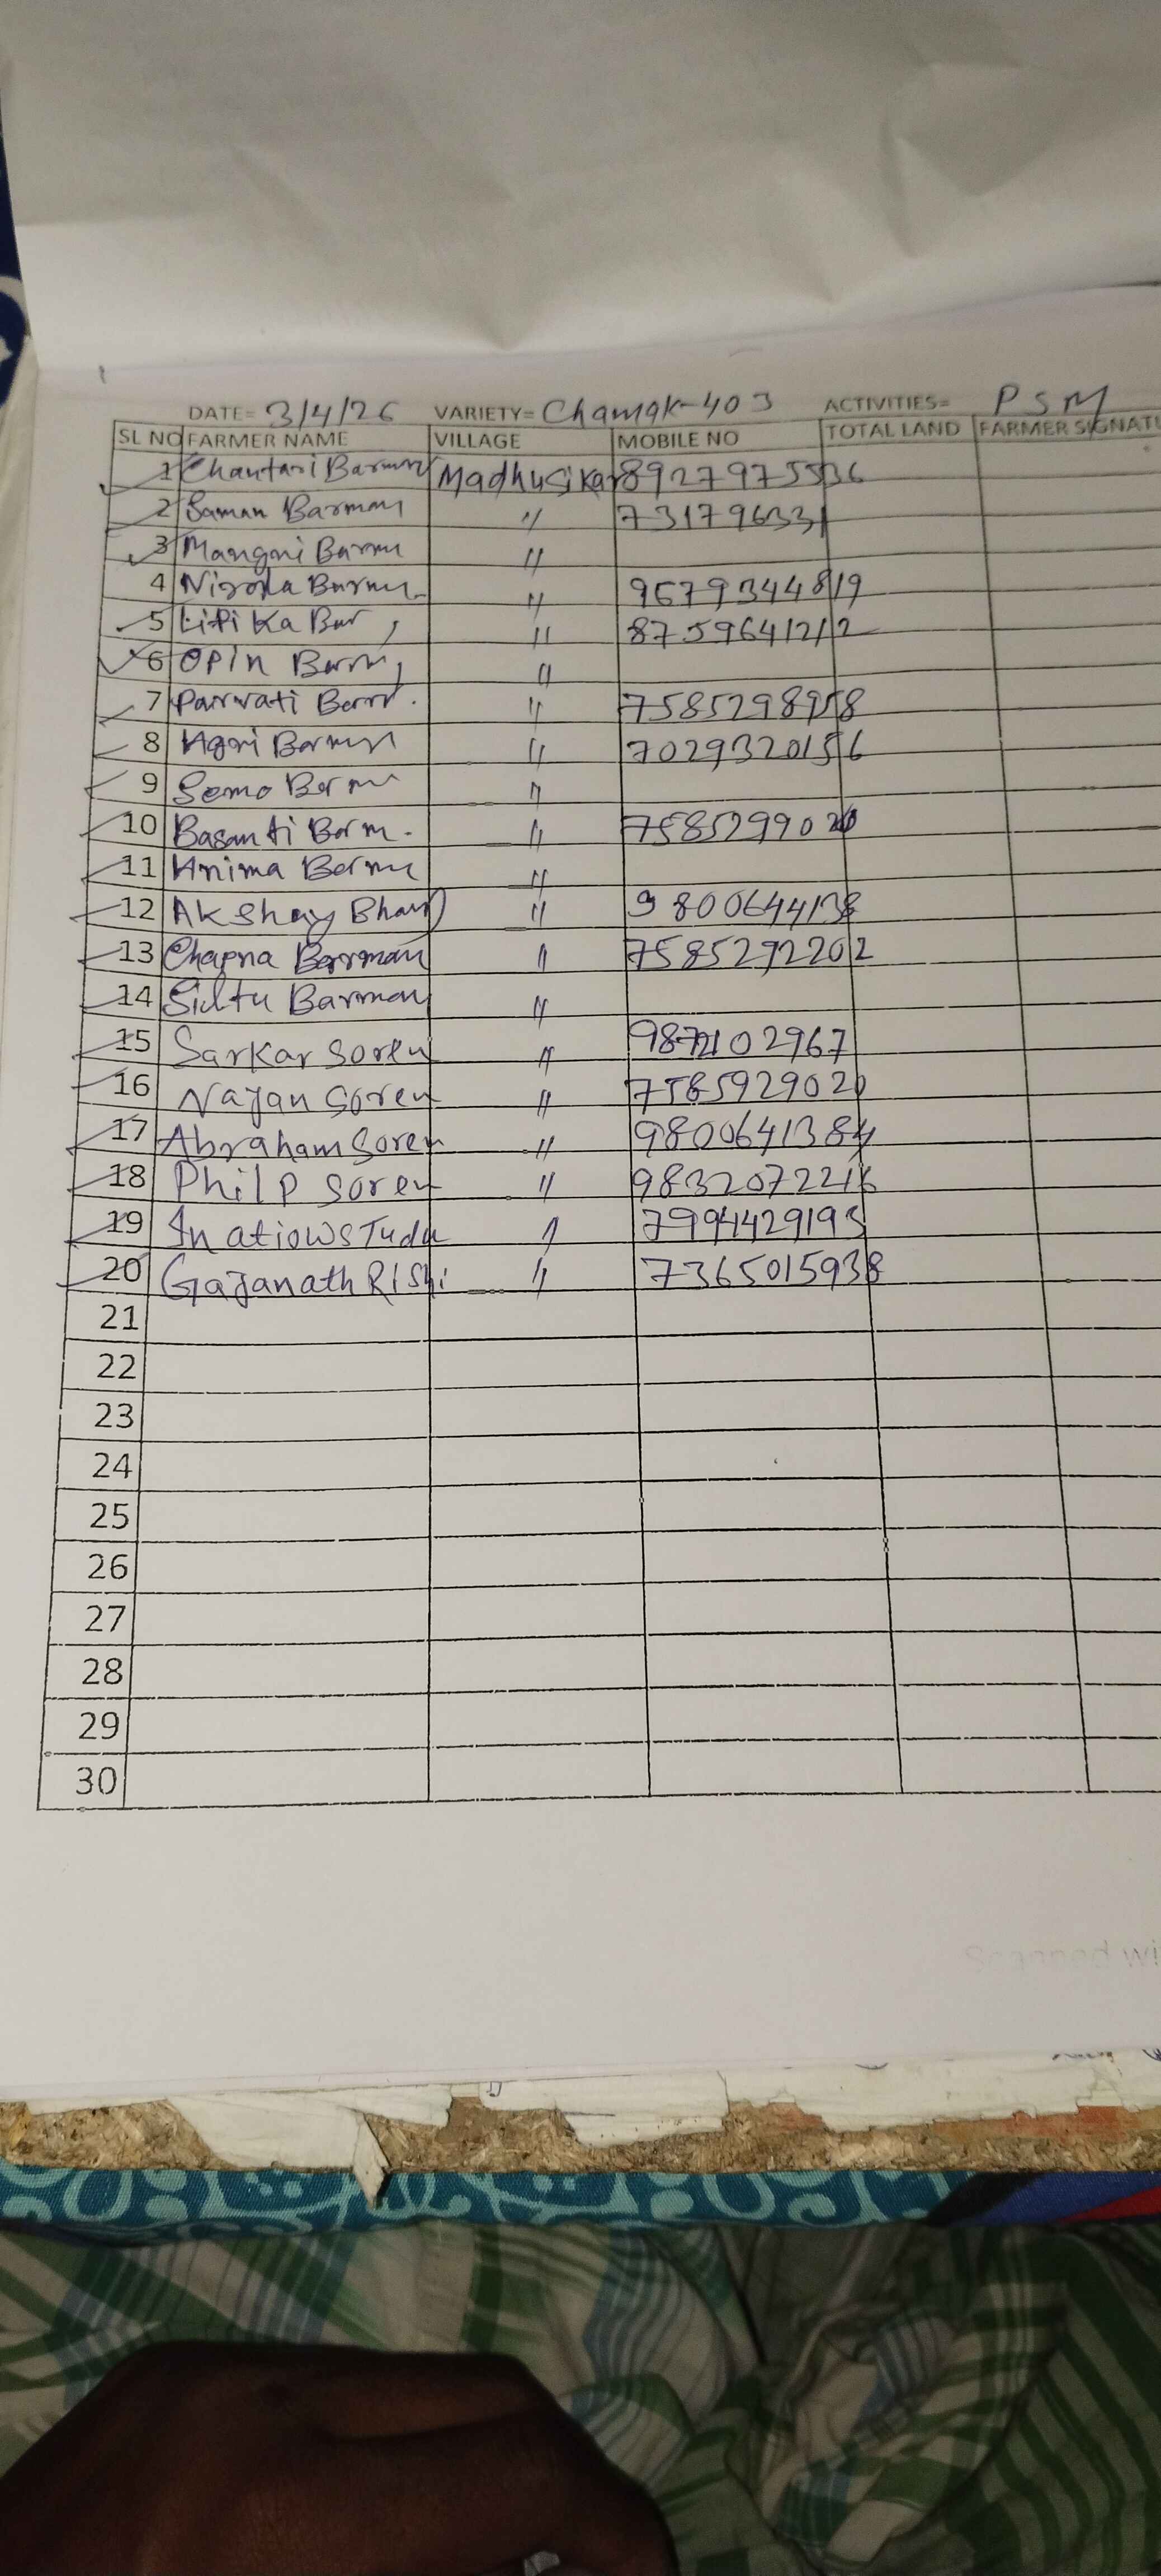 DATE= 3/4/26 VARIETY= Chamak-403 ACTIVITIES= PSM
SL NO FARMER NAME VILLAGE MOBILE NO TOTAL LAND FARMER SIGNATU
1 Chantari Barman Madhusikar 8927975536
2 Saman Barman " 731796331
3 Mangni Barmn "
4 Niroda Barman " 9679344819
5 Lipika Bar " 8759641212
6 Opin Barm "
7 Parvati Barm. " 7585298958
8 Hari Barman " 7029320156
9 Semo Barm "
10 Basanti Barm. " 7585299020
11 Anima Barmn "
12 Akshay Bharo " 9800644138
13 Chapna Barman " 7585292202
14 Sidtu Barman "
15 Sarkar Soren " 02967
16 Nayan Soren " 7585929020
17 Abraham Soren " 9800641384
18 Philp Soren " 9832072216
19 Inatiows Tudu " 7994429195
20 Gajanath Rishi " 7365015938
21
22
23
24
25
26
27
28
29
30
Scanned wi